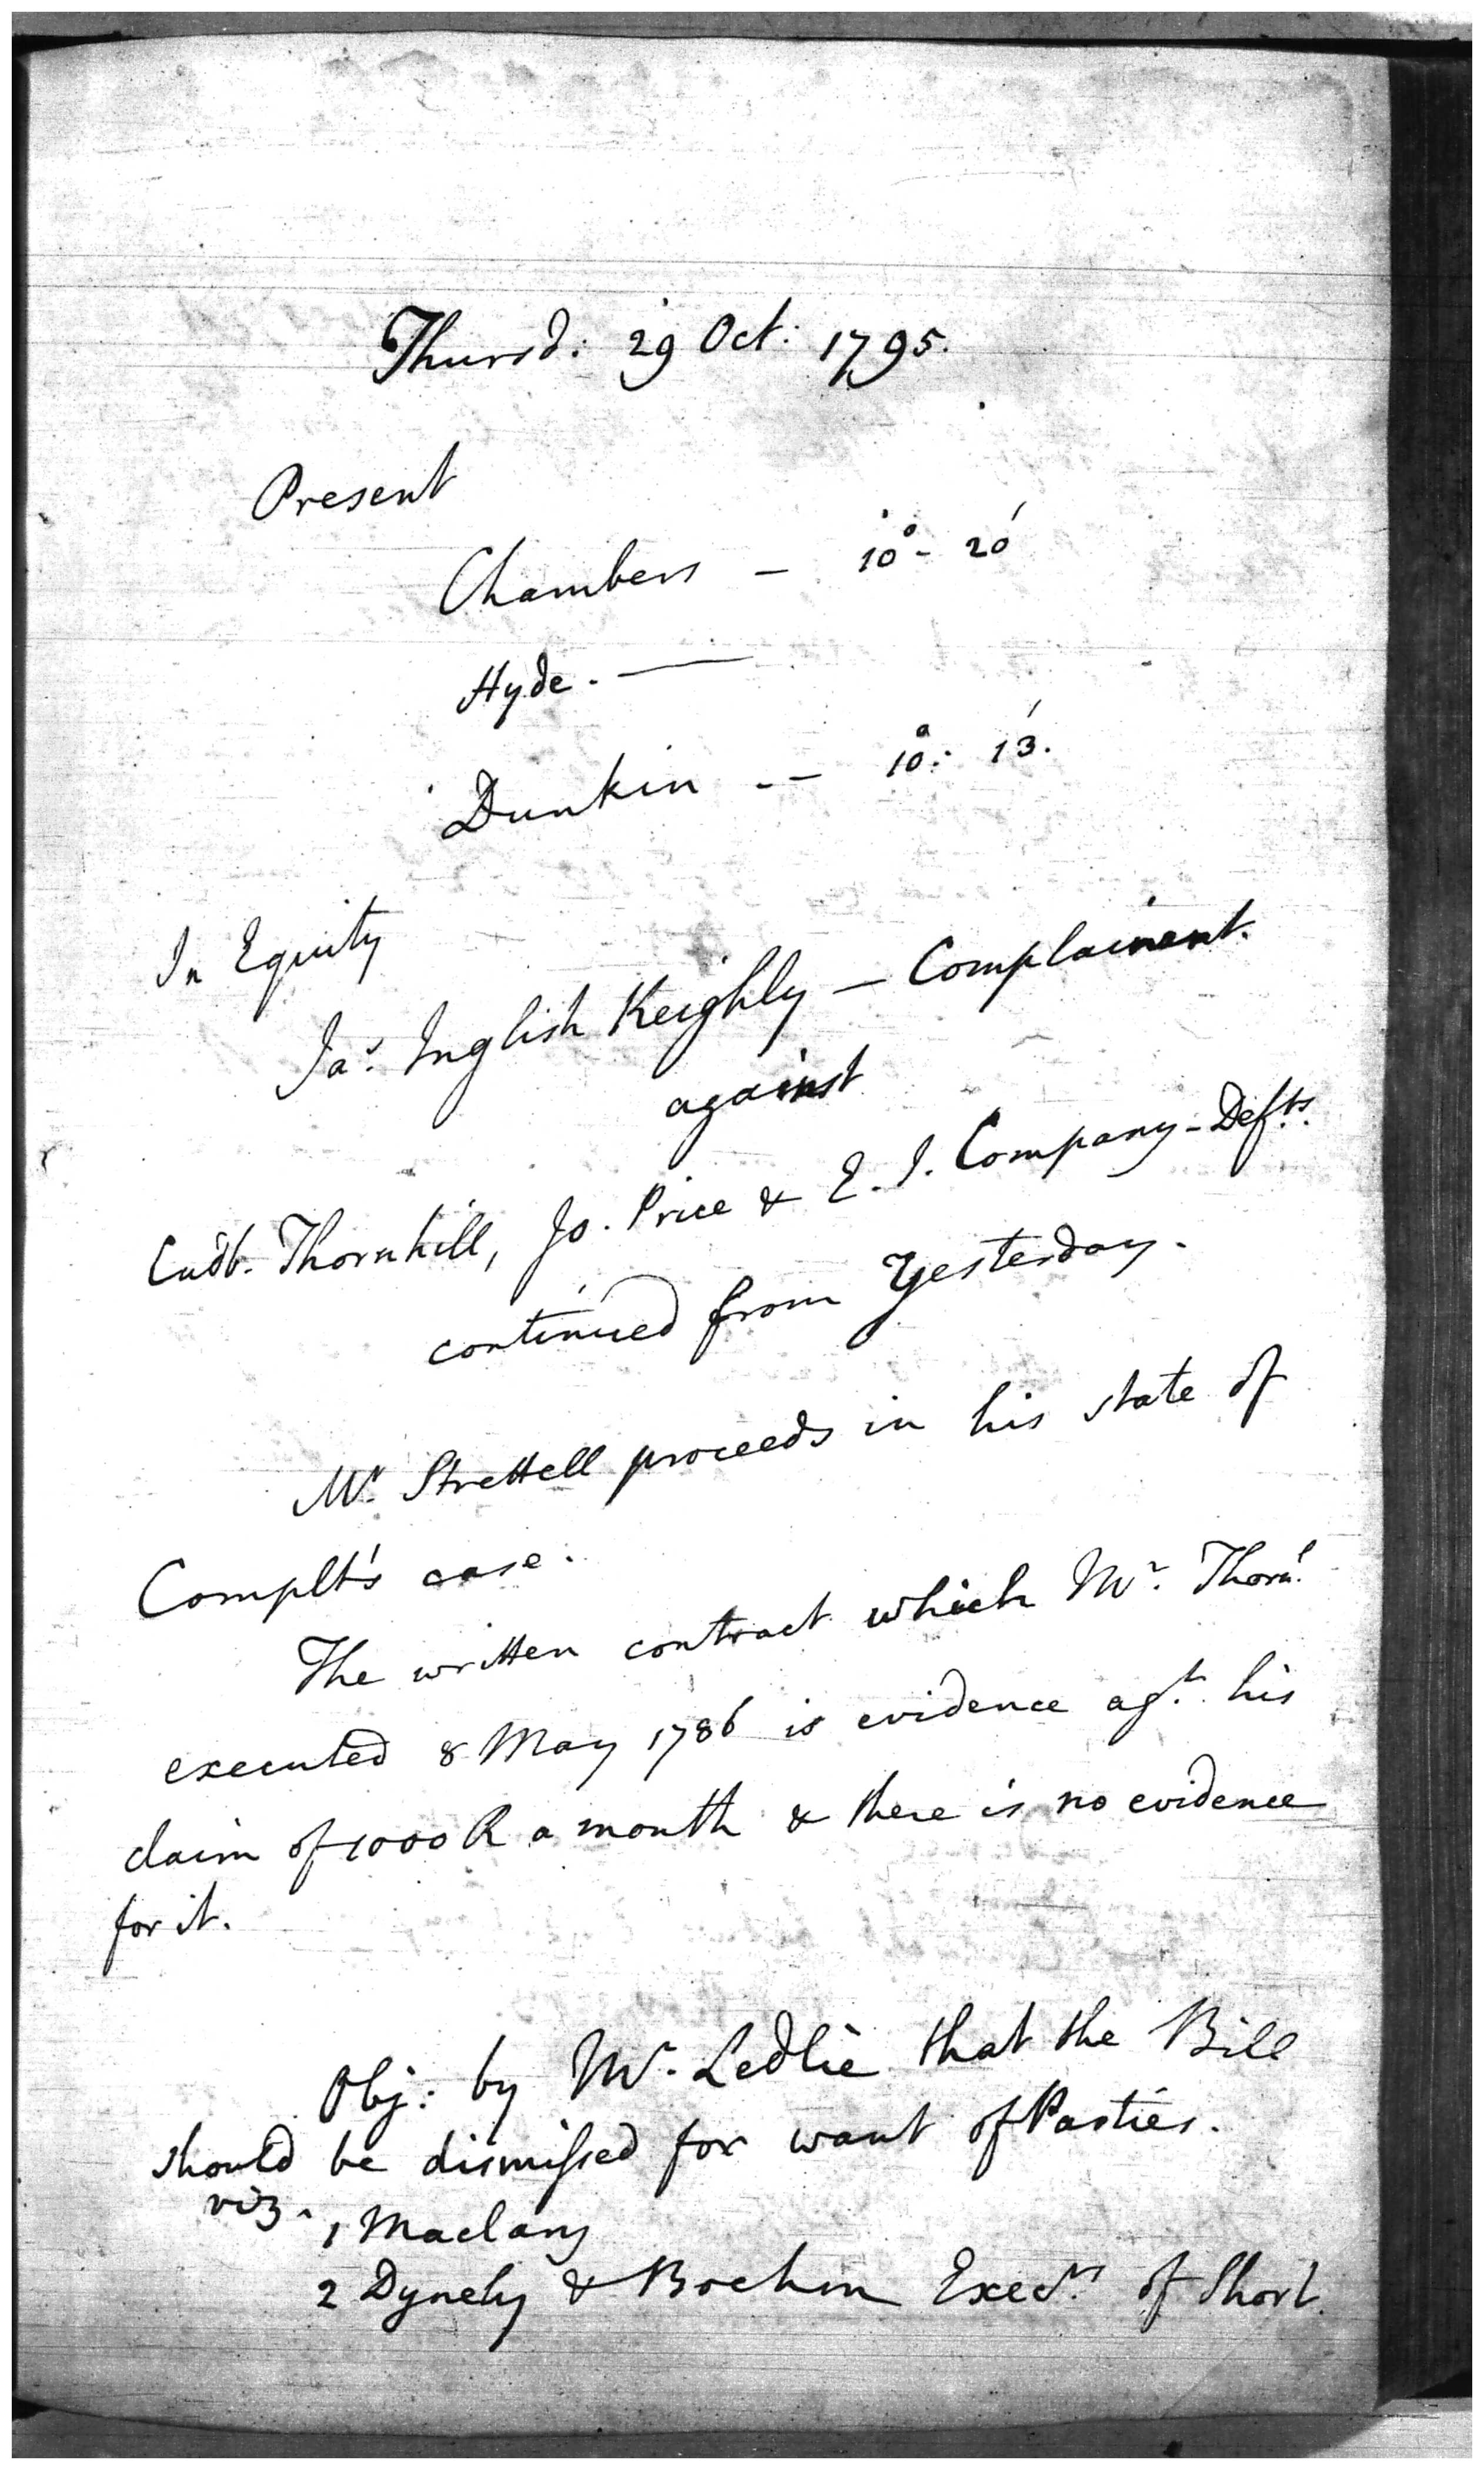 Thursd: 29 Oct: 1795.
Present
Chambers – 10° - 20'
Hyde. —
Dunkin -- 10°: 13'.
In Equity
Jas. Inglish Keighly — Complainant.
against
Cudb. Thornhill, Jo. Price & E. I. Company - Defts.
continued from Yesterday.
Mr. Strettell proceeds in his state of
Complt's case.
The written contract which Mr. Thornl.
executed 8 May 1786 is evidence agt. his
claim of 1000 R a month & there is no evidence
for it.
Obj: by Mr. Ledlie that the Bill
should be dismissed for want of Parties.
viz.
1 Maclary
2 Dynely & Boehm Execrs. of Short.